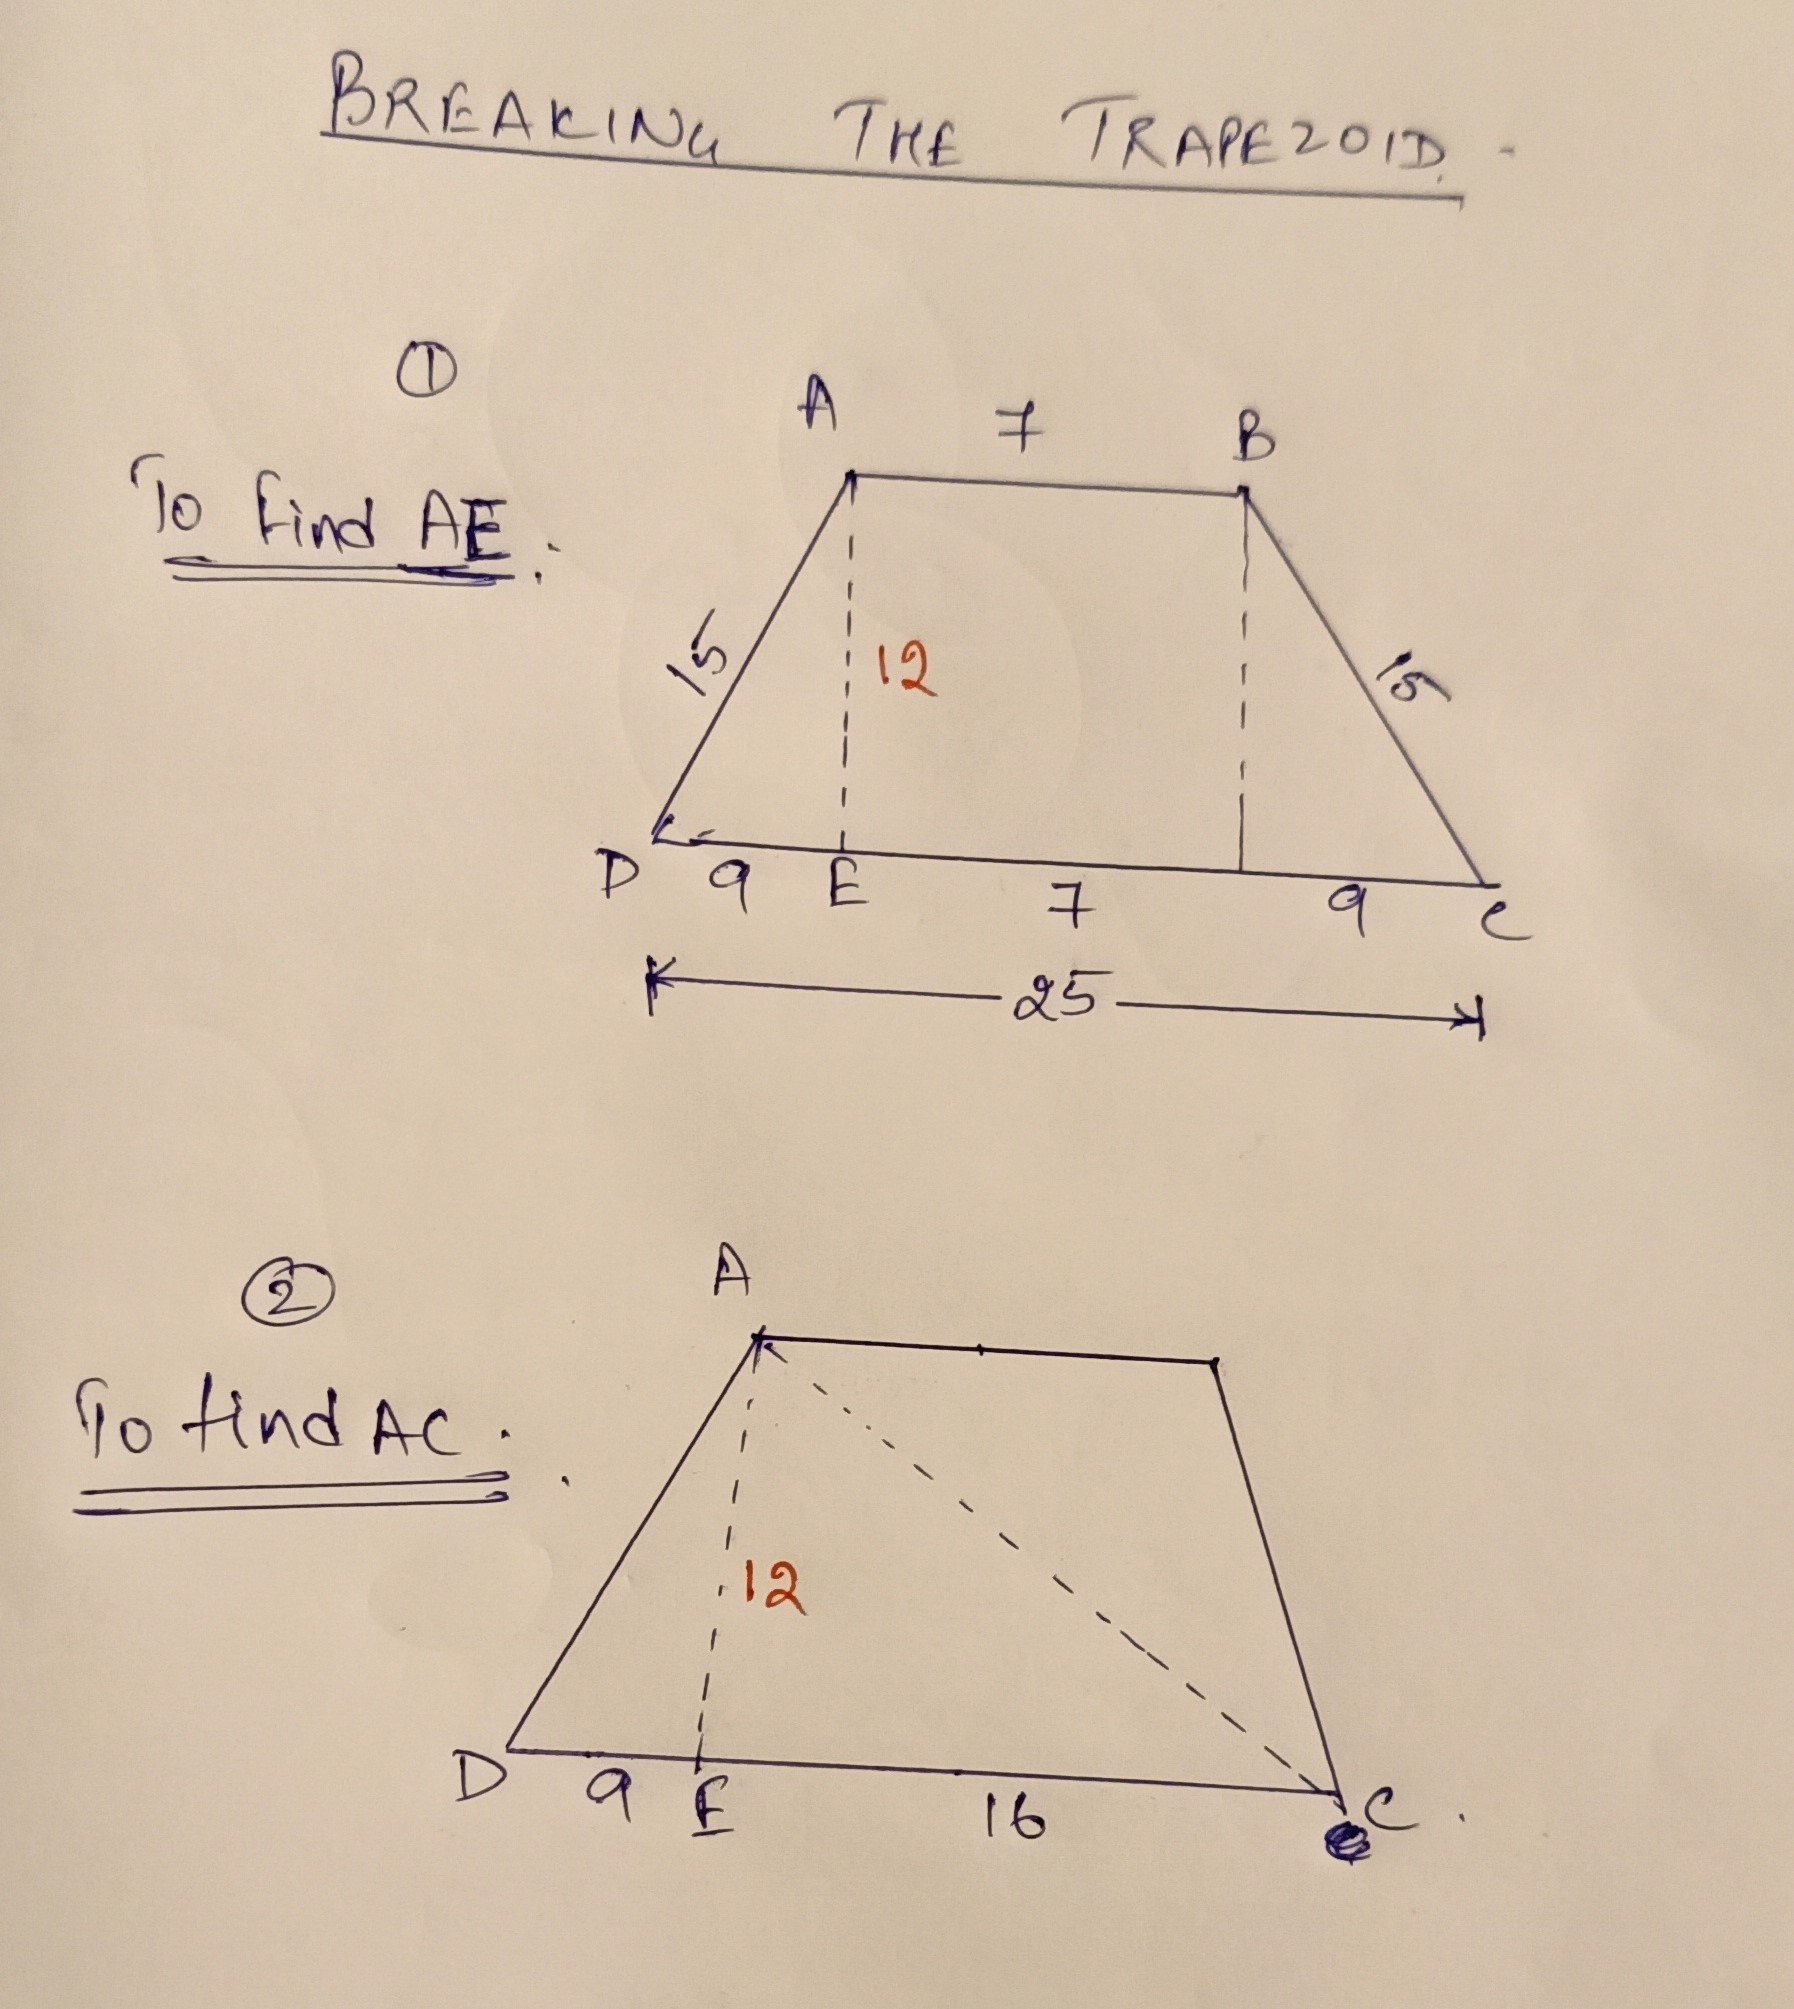 BREAKING THE TRAPEZOID.
①
To find AE.
A 7 B
15 12 15
D 9 E 7 9 C
25
②
A
To find AC.
12
D 9 E 16 C.